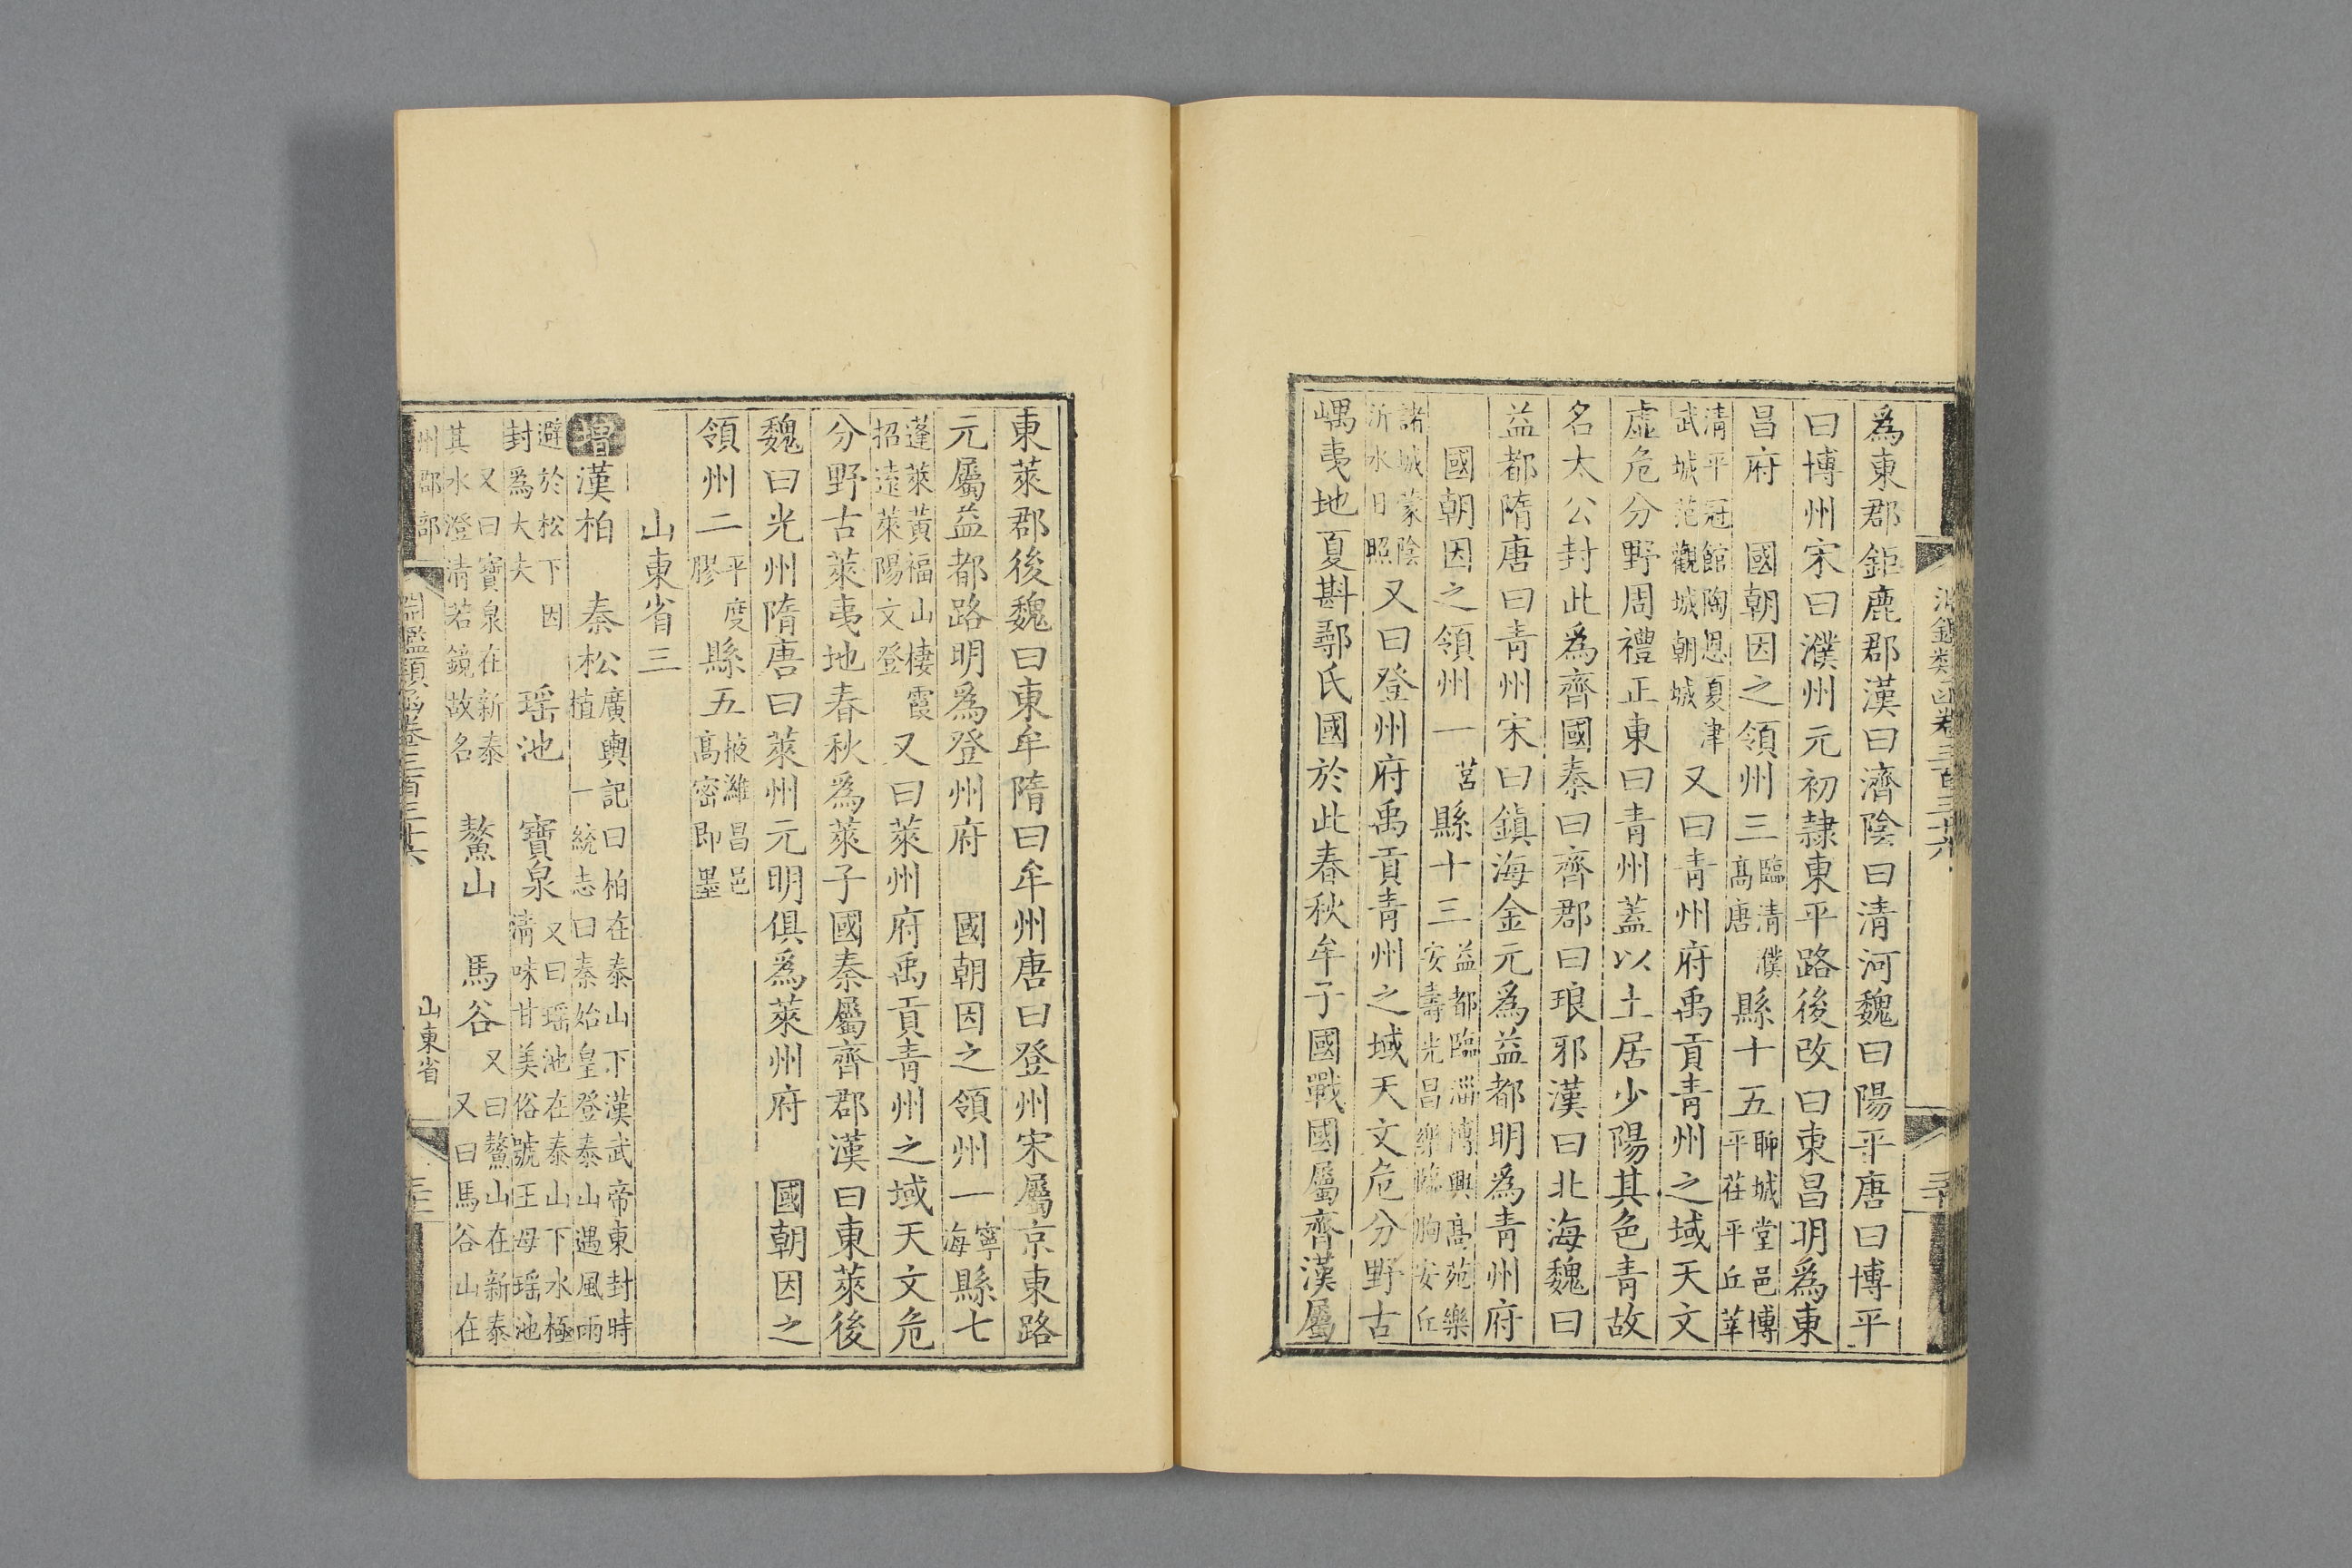 爲東郡鉅鹿郡漢曰濟陰曰清河魏曰陽平唐曰博平
曰博州宋曰濮州元初隷東平路後改曰東昌明爲東
昌府 國朝因之領州三臨清濮高唐縣十五聊城堂邑博平茌平丘莘
清平冠館陶恩夏津武城范觀城朝城又曰青州府禹貢青州之域天文
虛危分野周禮正東曰青州蓋以土居少陽其色青故
名太公封此爲齊國秦曰齊郡曰琅邪漢曰北海魏曰
益都隋唐曰青州宋曰鎮海金元爲益都明爲青州府
國朝因之領州一莒縣十三益都臨淄博興高苑樂安壽光昌樂臨朐安丘
諸城蒙陰沂水日照又曰登州府禹貢青州之域天文危分野古
嵎夷地夏斟鄩氏國於此春秋牟子國戰國屬齊漢屬
東萊郡後魏曰東牟隋曰牟州唐曰登州宋屬京東路
元屬益都路明爲登州府 國朝因之領州一寧海縣七
蓬萊黃福山棲霞招遠萊陽文登又曰萊州府禹貢青州之域天文危
分野古萊夷地春秋爲萊子國秦屬齊郡漢曰東萊後
魏曰光州隋唐曰萊州元明俱爲萊州府 國朝因之
領州二平度膠縣五掖濰昌邑高密即墨
山東省三
增漢柏 秦松廣輿記曰柏在泰山下漢武帝東封時植 一統志曰秦始皇登泰山遇風雨
避於松下因封爲大夫 瑶池 寶泉又曰瑶池在泰山下水極清味甘美俗號王母瑶池
又曰寶泉在新泰其水澄清若鏡故名 鰲山 馬谷又曰鰲山在新泰又曰馬谷山在
淵鑑類函卷三百三十六
山東省